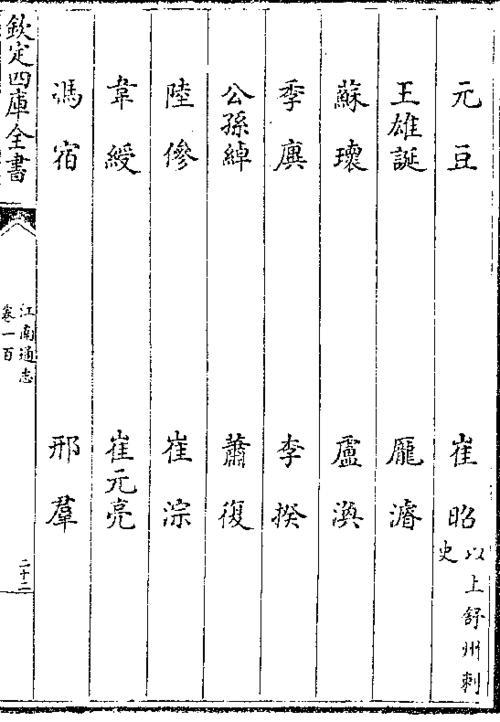 元豆　崔昭以上舒州刺史
王雄誕　龐濬
蘇瓌　盧渙
季廙　李揆
公孫綽　蕭復
陸傪　崔淙
韋綬　崔元亮
馮宿　邢羣
欽定四庫全書
江南通志
卷一百
二十二